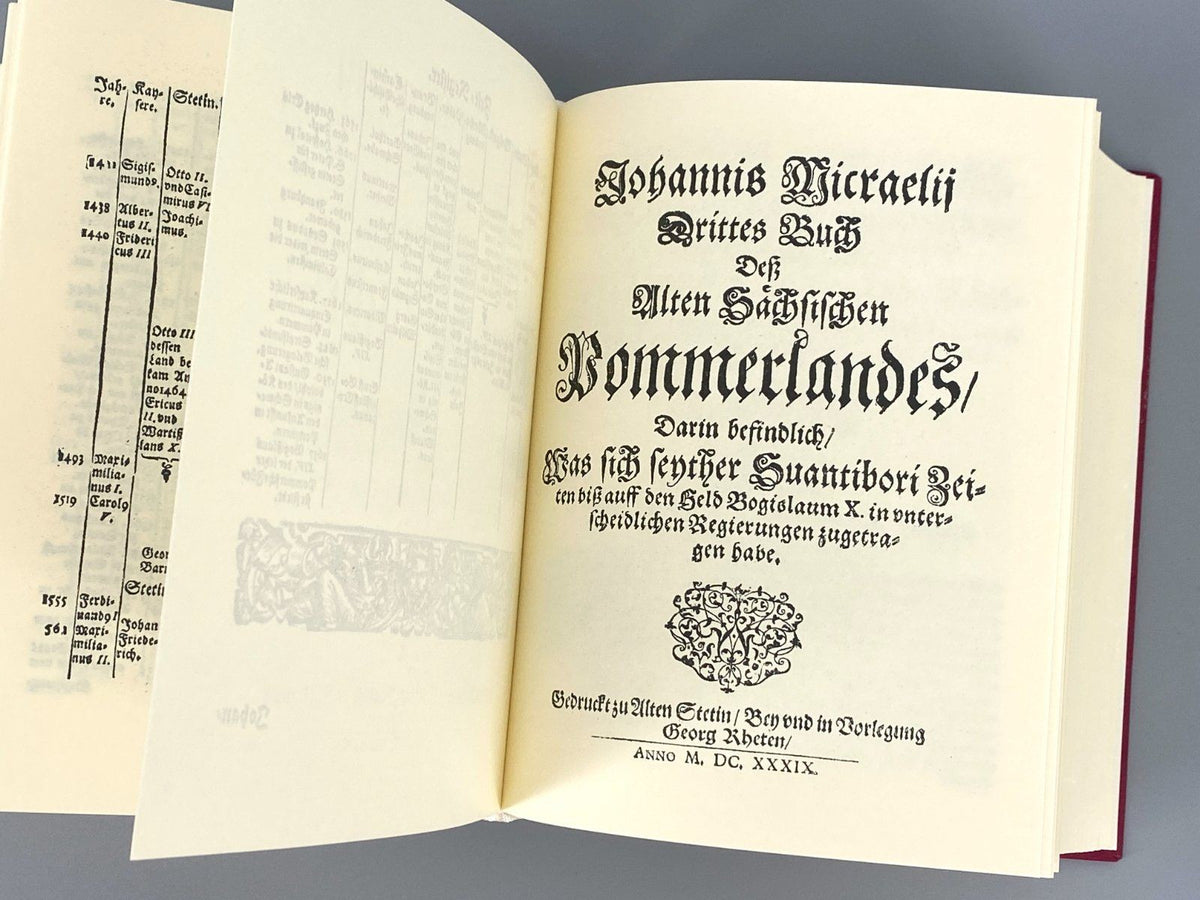 Jah-
re.
Kay-
sere.
Stetin.
Sigis-
mundꝰ.
Otto II.
vnd Casi-
mirus VI
Joachi-
mus.
1438
Alber-
tus II.
1440
Frideri
cus III
Otto III
dessen
Land be
kam An
no 1464
Ericus
II. vnd
Wartiß
lans X.
1493
Maxi-
milia-
nus I.
1519
Carolꝰ
V.
Geor
Bar
Steti
1555
Ferdi-
nandꝰ I
561
Maxi-
milia-
nus II.
Johan
Friede-
rich.
Johannis Micraelij
Drittes Buch
Deß
Alten Sächsischen
Pommerlandes/
Darin befindlich/
Was sich seyther Suantibori Zei-
ten biß auff den Held Bogislaum X. in vnter-
scheidlichen Regierungen zugetra-
gen habe.
Gedruckt zu Alten Stetin/ Bey vnd in Vorlegung
Georg Rheten/
ANNO M. DC. XXXIX.